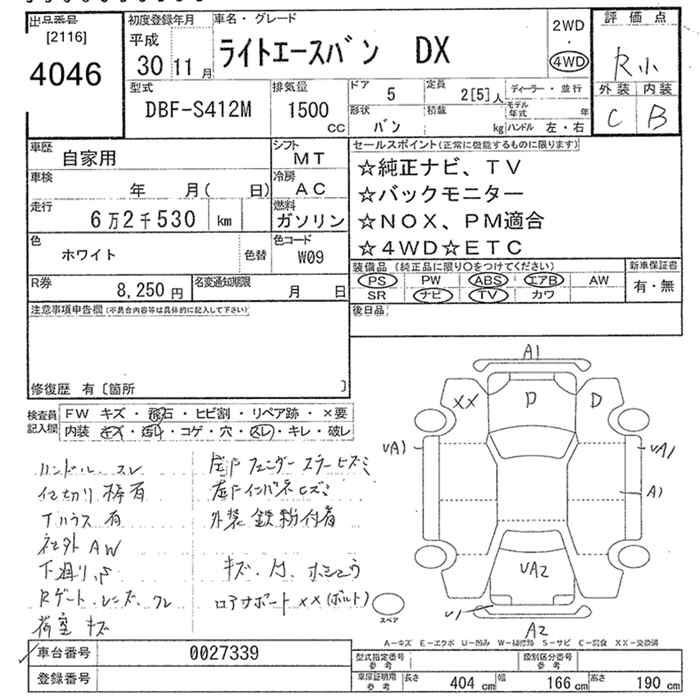 出品番号 初度登録年月 車名・グレード 2WD・4WD 評価点
[2116]
4046
平成
30 11月
ライトエースバン DX
R小
型式 排気量 ドア 定員 ディーラー・並行 外装 内装
DBF-S412M 1500 CC 5 2[5]人 モデル年式 年 C B
形状 積載
バン kg ハンドル 左・右
車歴 自家用 シフト MT
セールスポイント(正常に機能するものに限ります)
☆純正ナビ、TV
☆バックモニター
☆NOX、PM適合
☆4WD☆ETC
車検 年 月( 日) 冷房 AC
走行 6万2千530 km 燃料 ガソリン
色 ホワイト 色替 色コード W09
装備品(純正品に限り○をつけてください) 新車保証書
PS PW ABS エアB AW 有・無
SR ナビ TV カワ
R券 8,250 円 名変通知期限 月 日
後日品
注意事項申告欄(不具合内容等は具体的に記入して下さい)
修復歴 有〔箇所 〕
検査員記入欄 FW キズ・飛石・ヒビ割・リペア跡・×要
内装 キズ・汚れ・コゲ・穴・スレ・キレ・破レ
ハンドル スレ
仕切り棒有
Tハウス 有
社外 AW
下廻り
Rゲート.レンズ.ワレ
荷室 キズ
左Fフェンダー ステーヒズミ
左Fインパネヒズミ
外装 鉄粉付着
キズ.凹.ホシュウ
コアサポート××(ボルト)
A1
XX D D
UA1 UA1
A1
UA2
U1
A2
スペア
A-キズ E-エクボ U-凹み W-補修跡 S-サビ C-腐食 XX-交換済
車台番号 0027339
登録番号
型式指定番号 参考 類別区分番号 参考
車庫証明用 参考 長さ 404 cm 幅 166 cm 高さ 190 cm